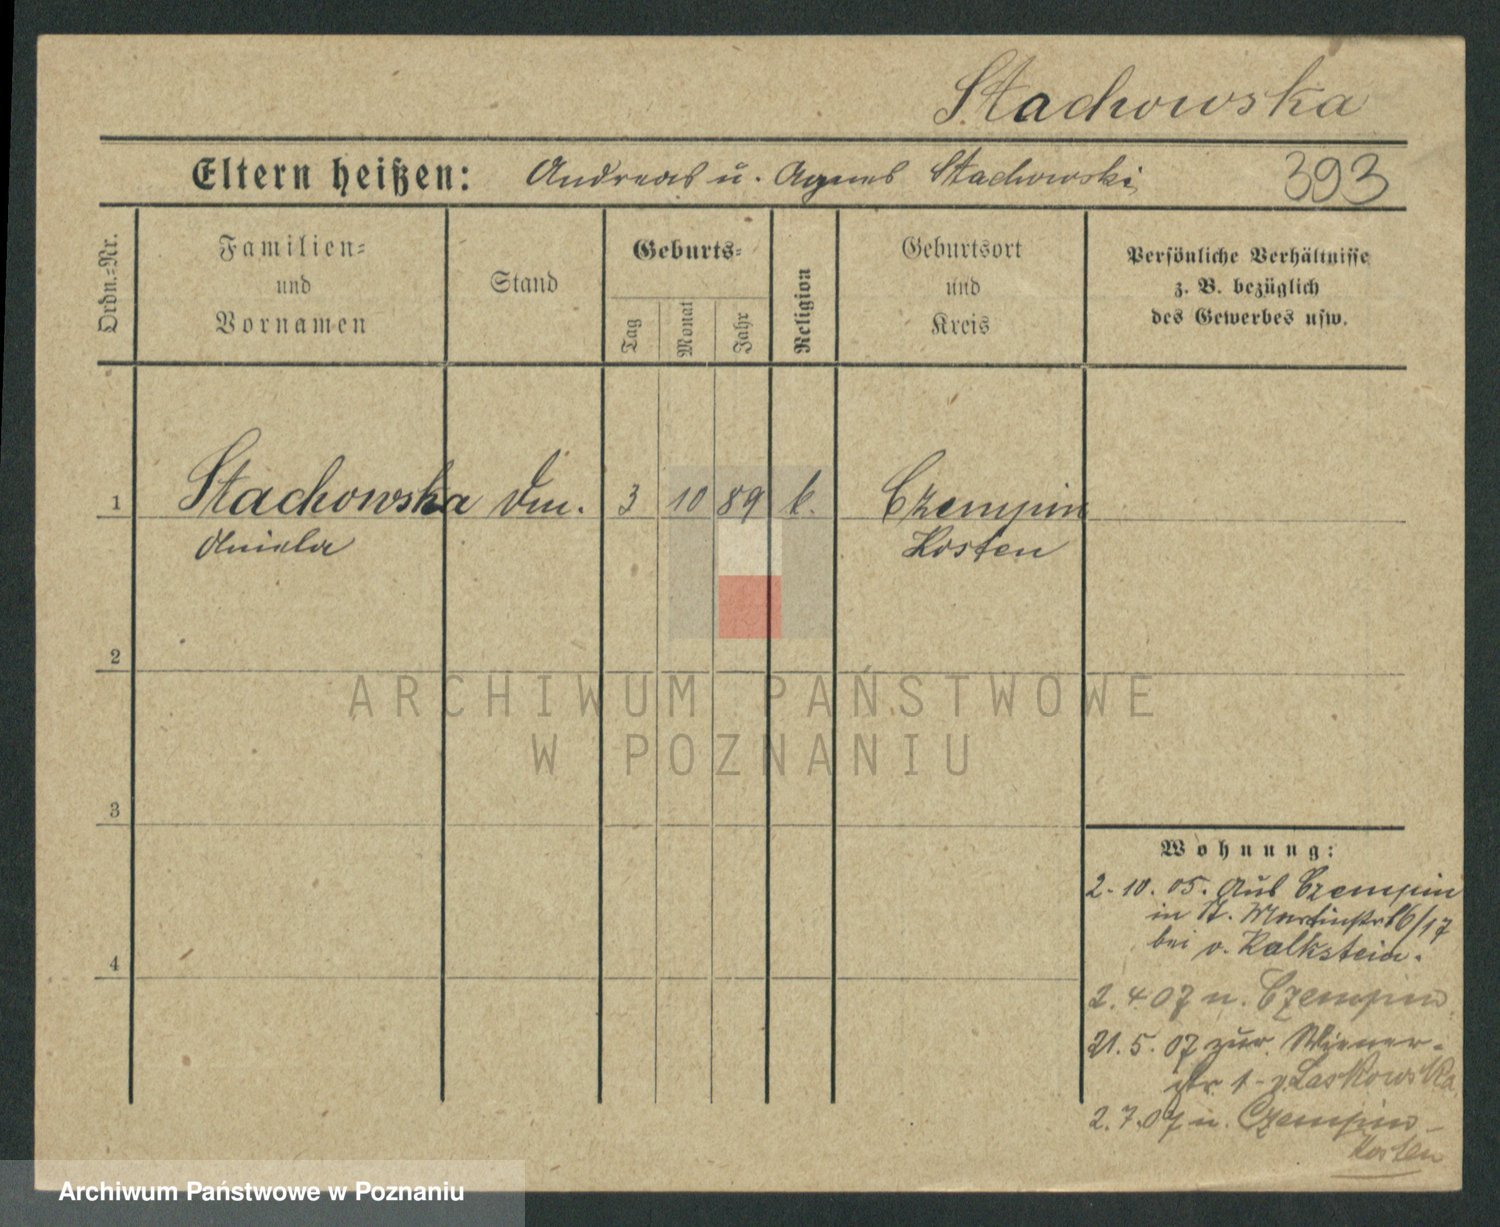 Stachowska
Eltern heißen: Andreas u. Agnes Stachowski 393
Ordn.-Nr.
Familien-
und
Vornamen
Stand
Geburts-
Tag
Monat
Jahr
Religion
Geburtsort
und
Kreis
Persönliche Verhältnisse
z. B. bezüglich
des Gewerbes usw.
1 Stachowska 3 10 89 k. Czempin
Aniela Kosten
2
ARCHIWUM PAŃSTWOWE
W POZNANIU
3
Wohnung:
2. 10. 05. Aus Czempin
in St. Martinstr 16/17
bei v. Kalkstein.
4
2. 4. 07 n. Czempin
21. 5. 07 zur. Wiener-
str. 1 Laskowska
2. 7. 07 n. Czempin-
Kosten
Archiwum Państwowe w Poznaniu